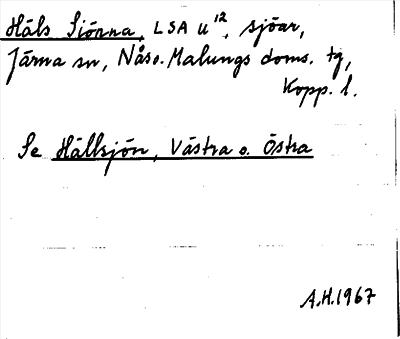 Häls Siönna, LSA U¹², sjöar,
Järna sn, Nås o. Malungs doms. tg,
Kopp. l.
Se Hällsjön, Västra o. Östra
A.H. 1967